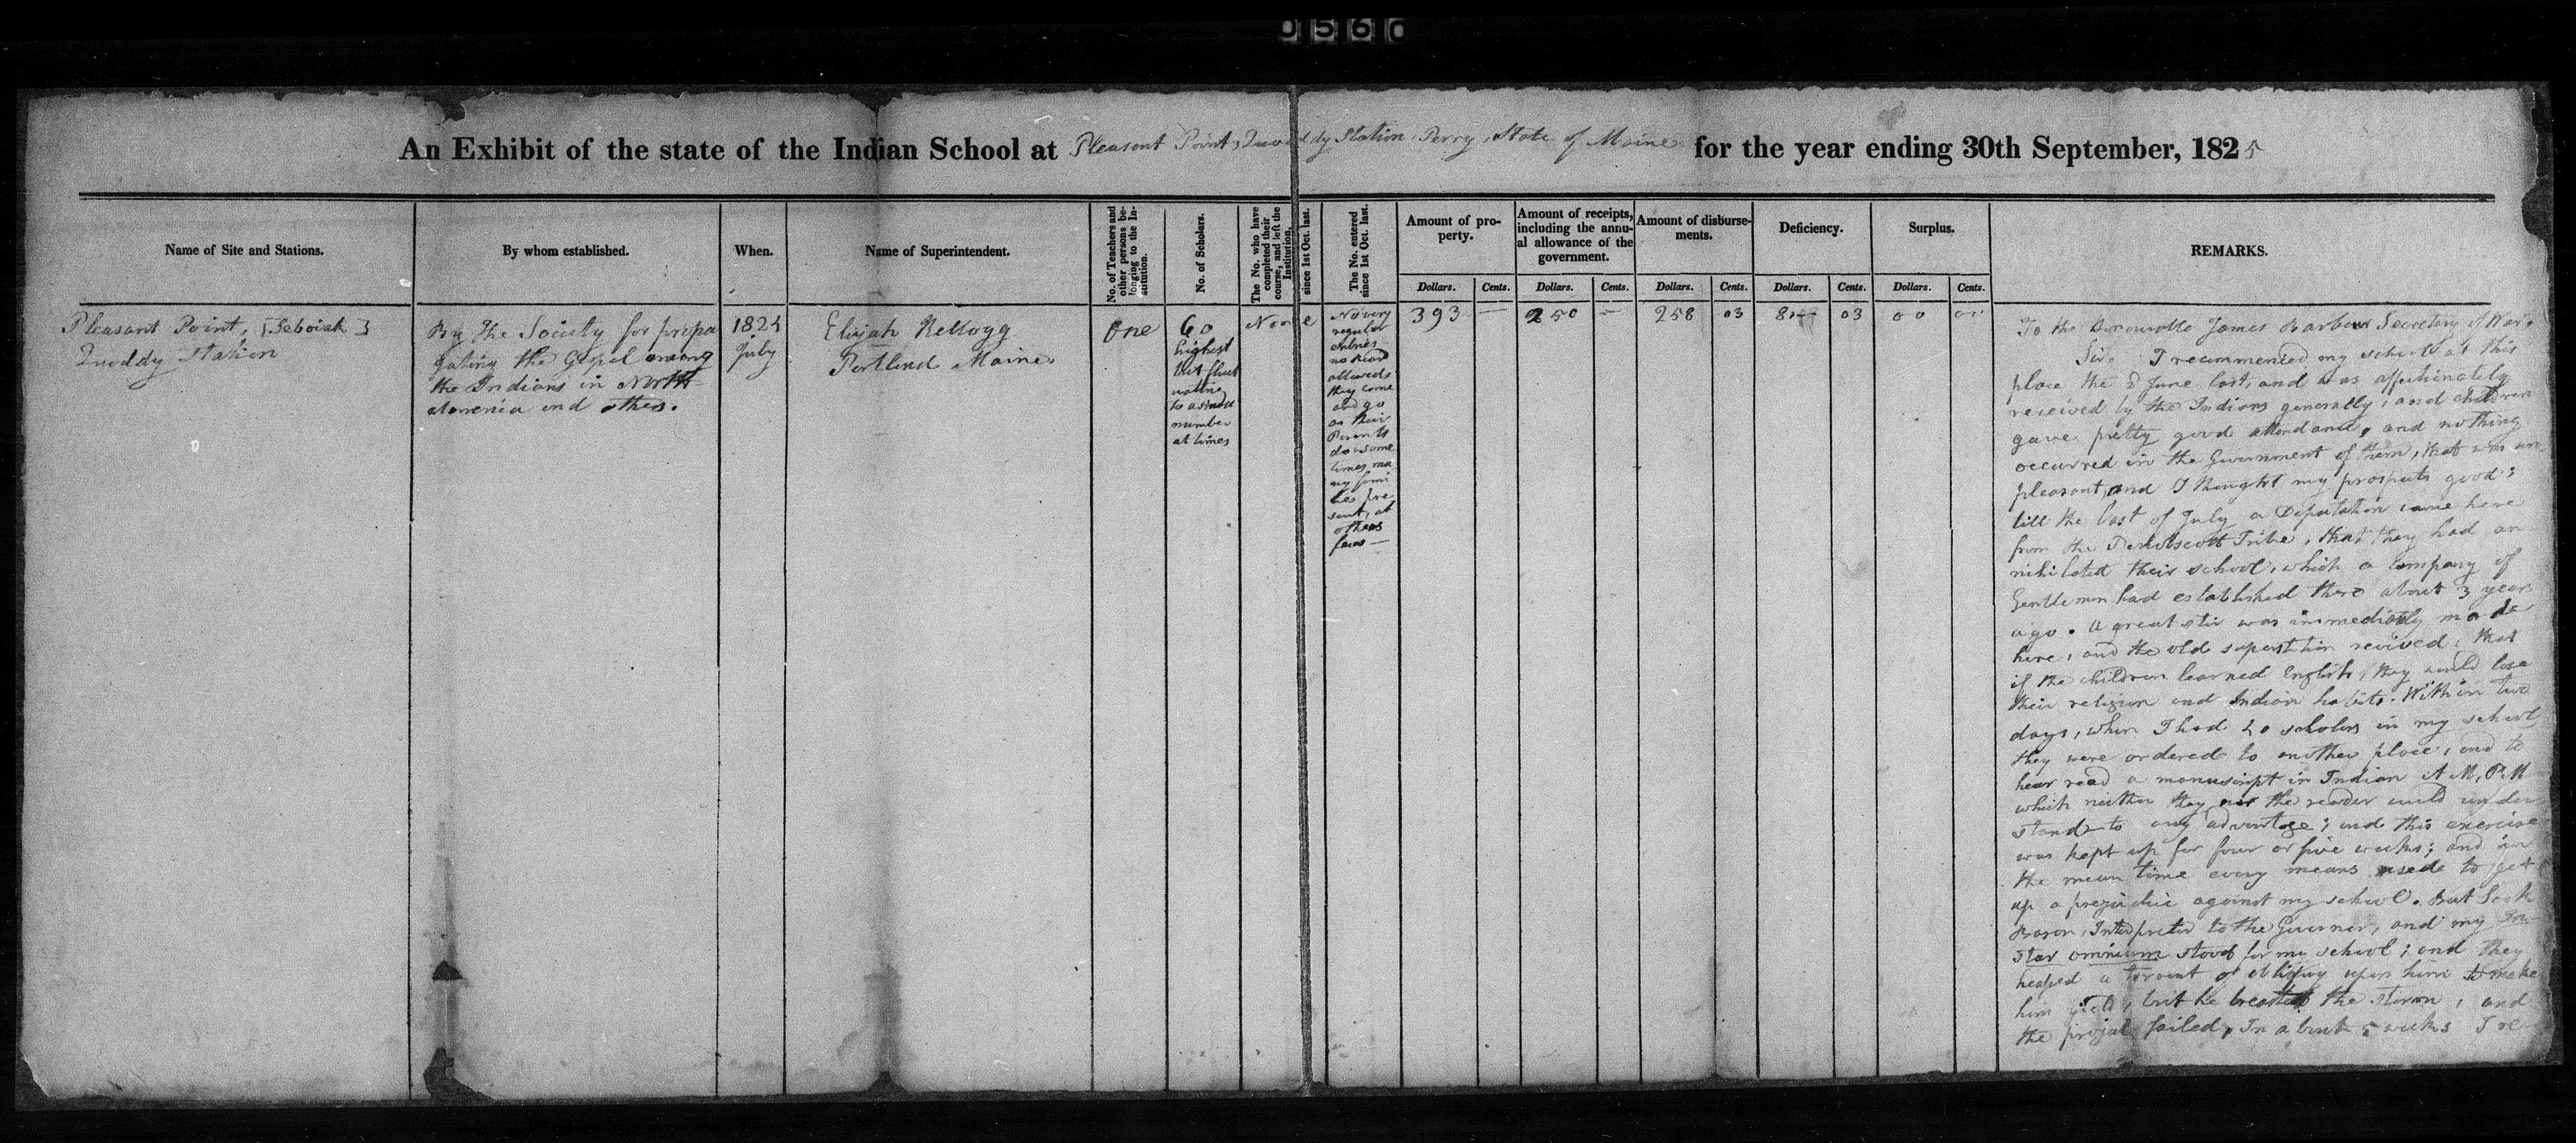 0560
An Exhibit of the state of the Indian School at Pleasant Point, Quoddy Station, Perry, State of Maine for the year ending 30th September, 1825
Name of Site and Stations.
By whom established.
When.
Name of Superintendent.
No. of Teachers and
other persons be-
longing to the In-
stitution.
No. of Scholars.
The No. who have
completed their
course, and left the
Institution,
since 1st Oct. last.
The No. entered
since 1st Oct. last.
Amount of pro-
perty.
Amount of receipts,
including the annu-
al allowance of the
government.
Amount of disburse-
ments.
Deficiency.
Surplus.
REMARKS.
Dollars. Cents. Dollars. Cents. Dollars. Cents. Dollars. Cents. Dollars. Cents.
Pleasant Point,
Quoddy Station
By the Society for propa
gating the Gospel among
the Indians in North
America and others.
July
Elijah Kellogg
Portland Maine
One
60
highest
but fluct
uating
to a small
number
at times
None
No very
regular
entries
no
allowed
they come
and go
as their
Parents
do some
times ma
ny fami
lies pre
sent, at
others
few —
393 —
250 —
258 03
8 — 03
00
To the Honourable James Barbour Secretary of War,
Sir, I recommenced my school at this
place the 2 June last, and was affectionately
received by the Indians generally, and children
gave pretty good attendance, and nothing
occurred in the Government of them, that was un
pleasant, and I thought my prospects good;
till the last of July a Deputation came here
from the Penobscott Tribe, that they had an
nihilated their school, which a company of
Gentlemen had established there about 3 years
ago. A great stir was immediatly made
here, and the old superstition revived, that
if the children learned English, they would lose
their religion and Indian habits. Within two
days, when I had 20 scholars in my school
they were ordered to another place, and to
hear read a manuscript in Indian A M, P. M
which neither they nor the reader could under
stand to any advantage; and this exercise
was kept up for four or five weeks; and in
the mean time every means used to get
up a prejudice against my school. But
Interpreter to the Governor, and my In
star omnium stood for my school; and they
heaped a torrent of obliquy upon him to make
him yield, but he breasted the storm, and
the failed, In about 5 weeks I re